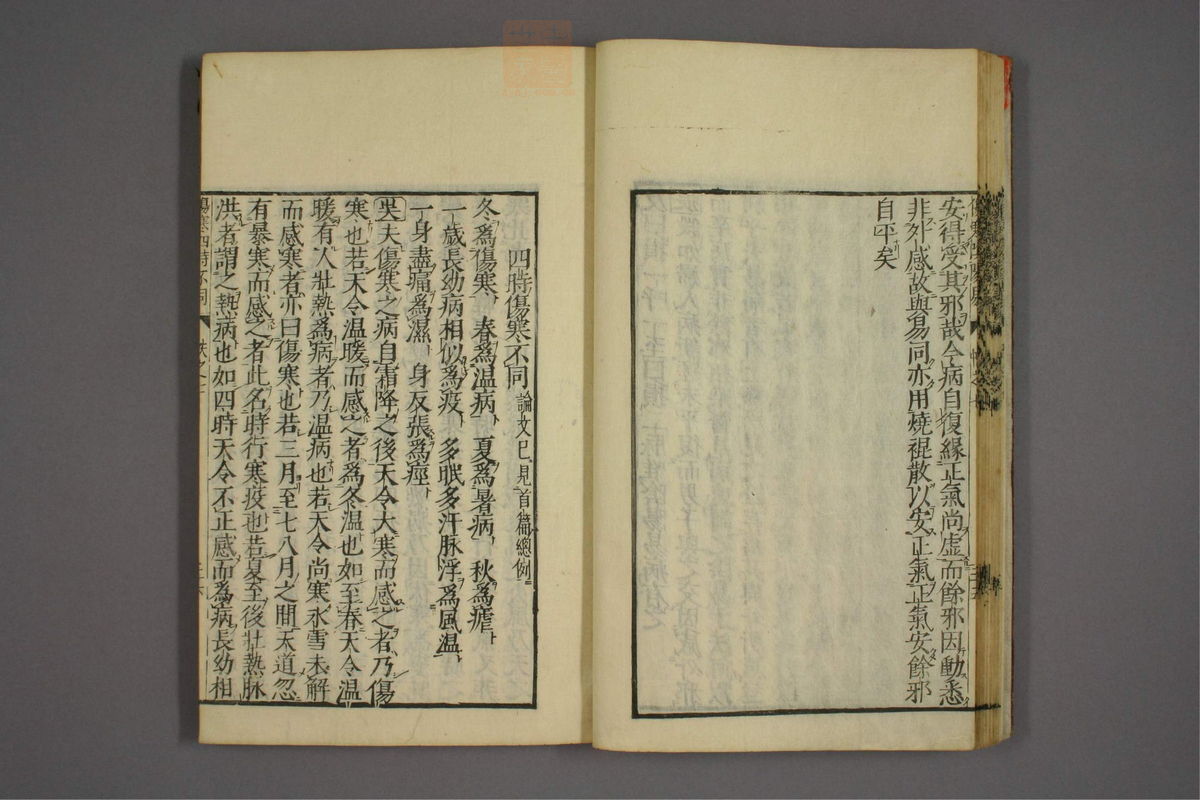 安得受其邪哉今病自復緣正氣尚虛而餘邪因動悉
非外感故與易同亦用燒裩散以安正氣正氣安餘邪
自平矣
四時傷寒不同 論文已見首篇總例
冬爲傷寒 春爲温病 夏爲暑病 秋爲瘧
一歲長幼病相似爲疫 多眠多汗脉浮爲風温
一身盡痛爲濕 身反張爲痙
吴夫傷寒之病自霜降之後天令大寒而感之者乃傷
寒也若天令温暖而感之者爲冬温也如至春天令温
暖有人壯熱爲病者乃温病也若天令尚寒氷雪未解
而感寒者亦曰傷寒也若三月至七八月之間天道忽
有暴寒而感之者此名時行寒疫也若夏至後壯熱脉
洪者謂之熱病也如四時天令不正感而爲病長幼相
傷寒四時不同